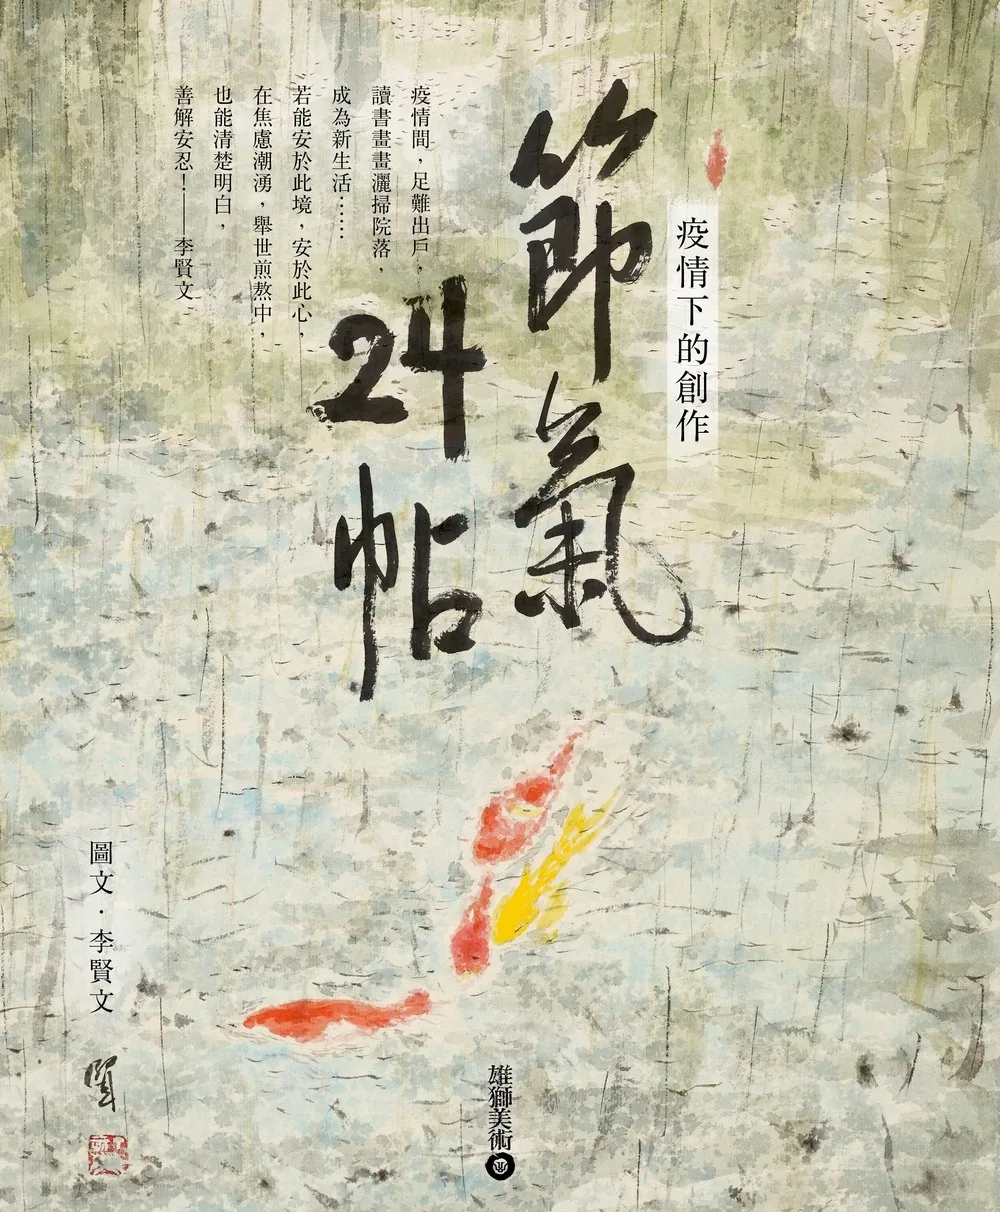 疫情下的創作
節氣
24帖
疫情間，足難出戶，
讀書畫畫灑掃院落，
成為新生活……
若能安於此境，安於此心，
在焦慮潮湧，舉世煎熬中，
也能清楚明白，
善解安忍！——李賢文
圖文·李賢文
賢
雄獅美術